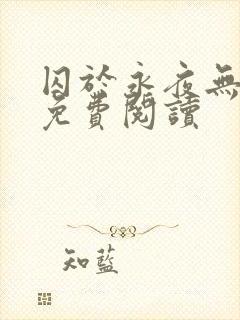 囚於永夜無
免費閱讀
知藍